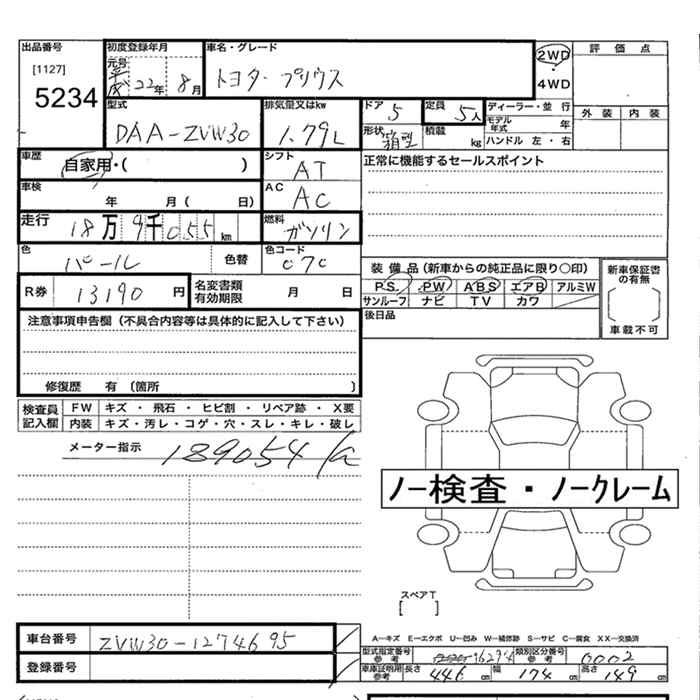 出品番号
[1127]
5234
初度登録年月
元号
平成 22年 8月
車名・グレード
トヨタ プリウス
2WD
・
4WD
評価点
外装 内装
型式
DAA-ZVW30
排気量又はkw
1.79L
ドア
5
定員
5人
ディーラー・並 行
モデル年式 年
形状
箱型
積載
kg
ハンドル 左・右
車歴
自家用・( )
シフト
AT
正常に機能するセールスポイント
車検
年 月( 日)
AC
AC
走行
18万9千055km
燃料
ガソリン
色
パール
色替
色コード
070
R券 13190 円
名変書類有効期限 月 日
装備品(新車からの純正品に限り〇印)
P.S. PW ABS エアB アルミW
サンルーフ ナビ TV カワ
新車保証書の有無
車載不可
後日品
注意事項申告欄(不具合内容等は具体的に記入して下さい)
修復歴 有(箇所 )
検査員記入欄
FW キズ・飛石・ヒビ割・リペア跡・X要
内装 キズ・汚レ・コゲ・穴・スレ・キレ・破レ
メーター指示
189054
ノー検査・ノークレーム
スペアT
[ ]
車台番号 ZVW30-1274695
登録番号
A―キズ E―エクボ U―凹み W―補修跡 S―サビ C―腐食 XX―交換済
型式指定番号参考 類別区分番号参考 0002
車庫証明用参考 長さ 446cm 幅 174cm 高さ 149cm